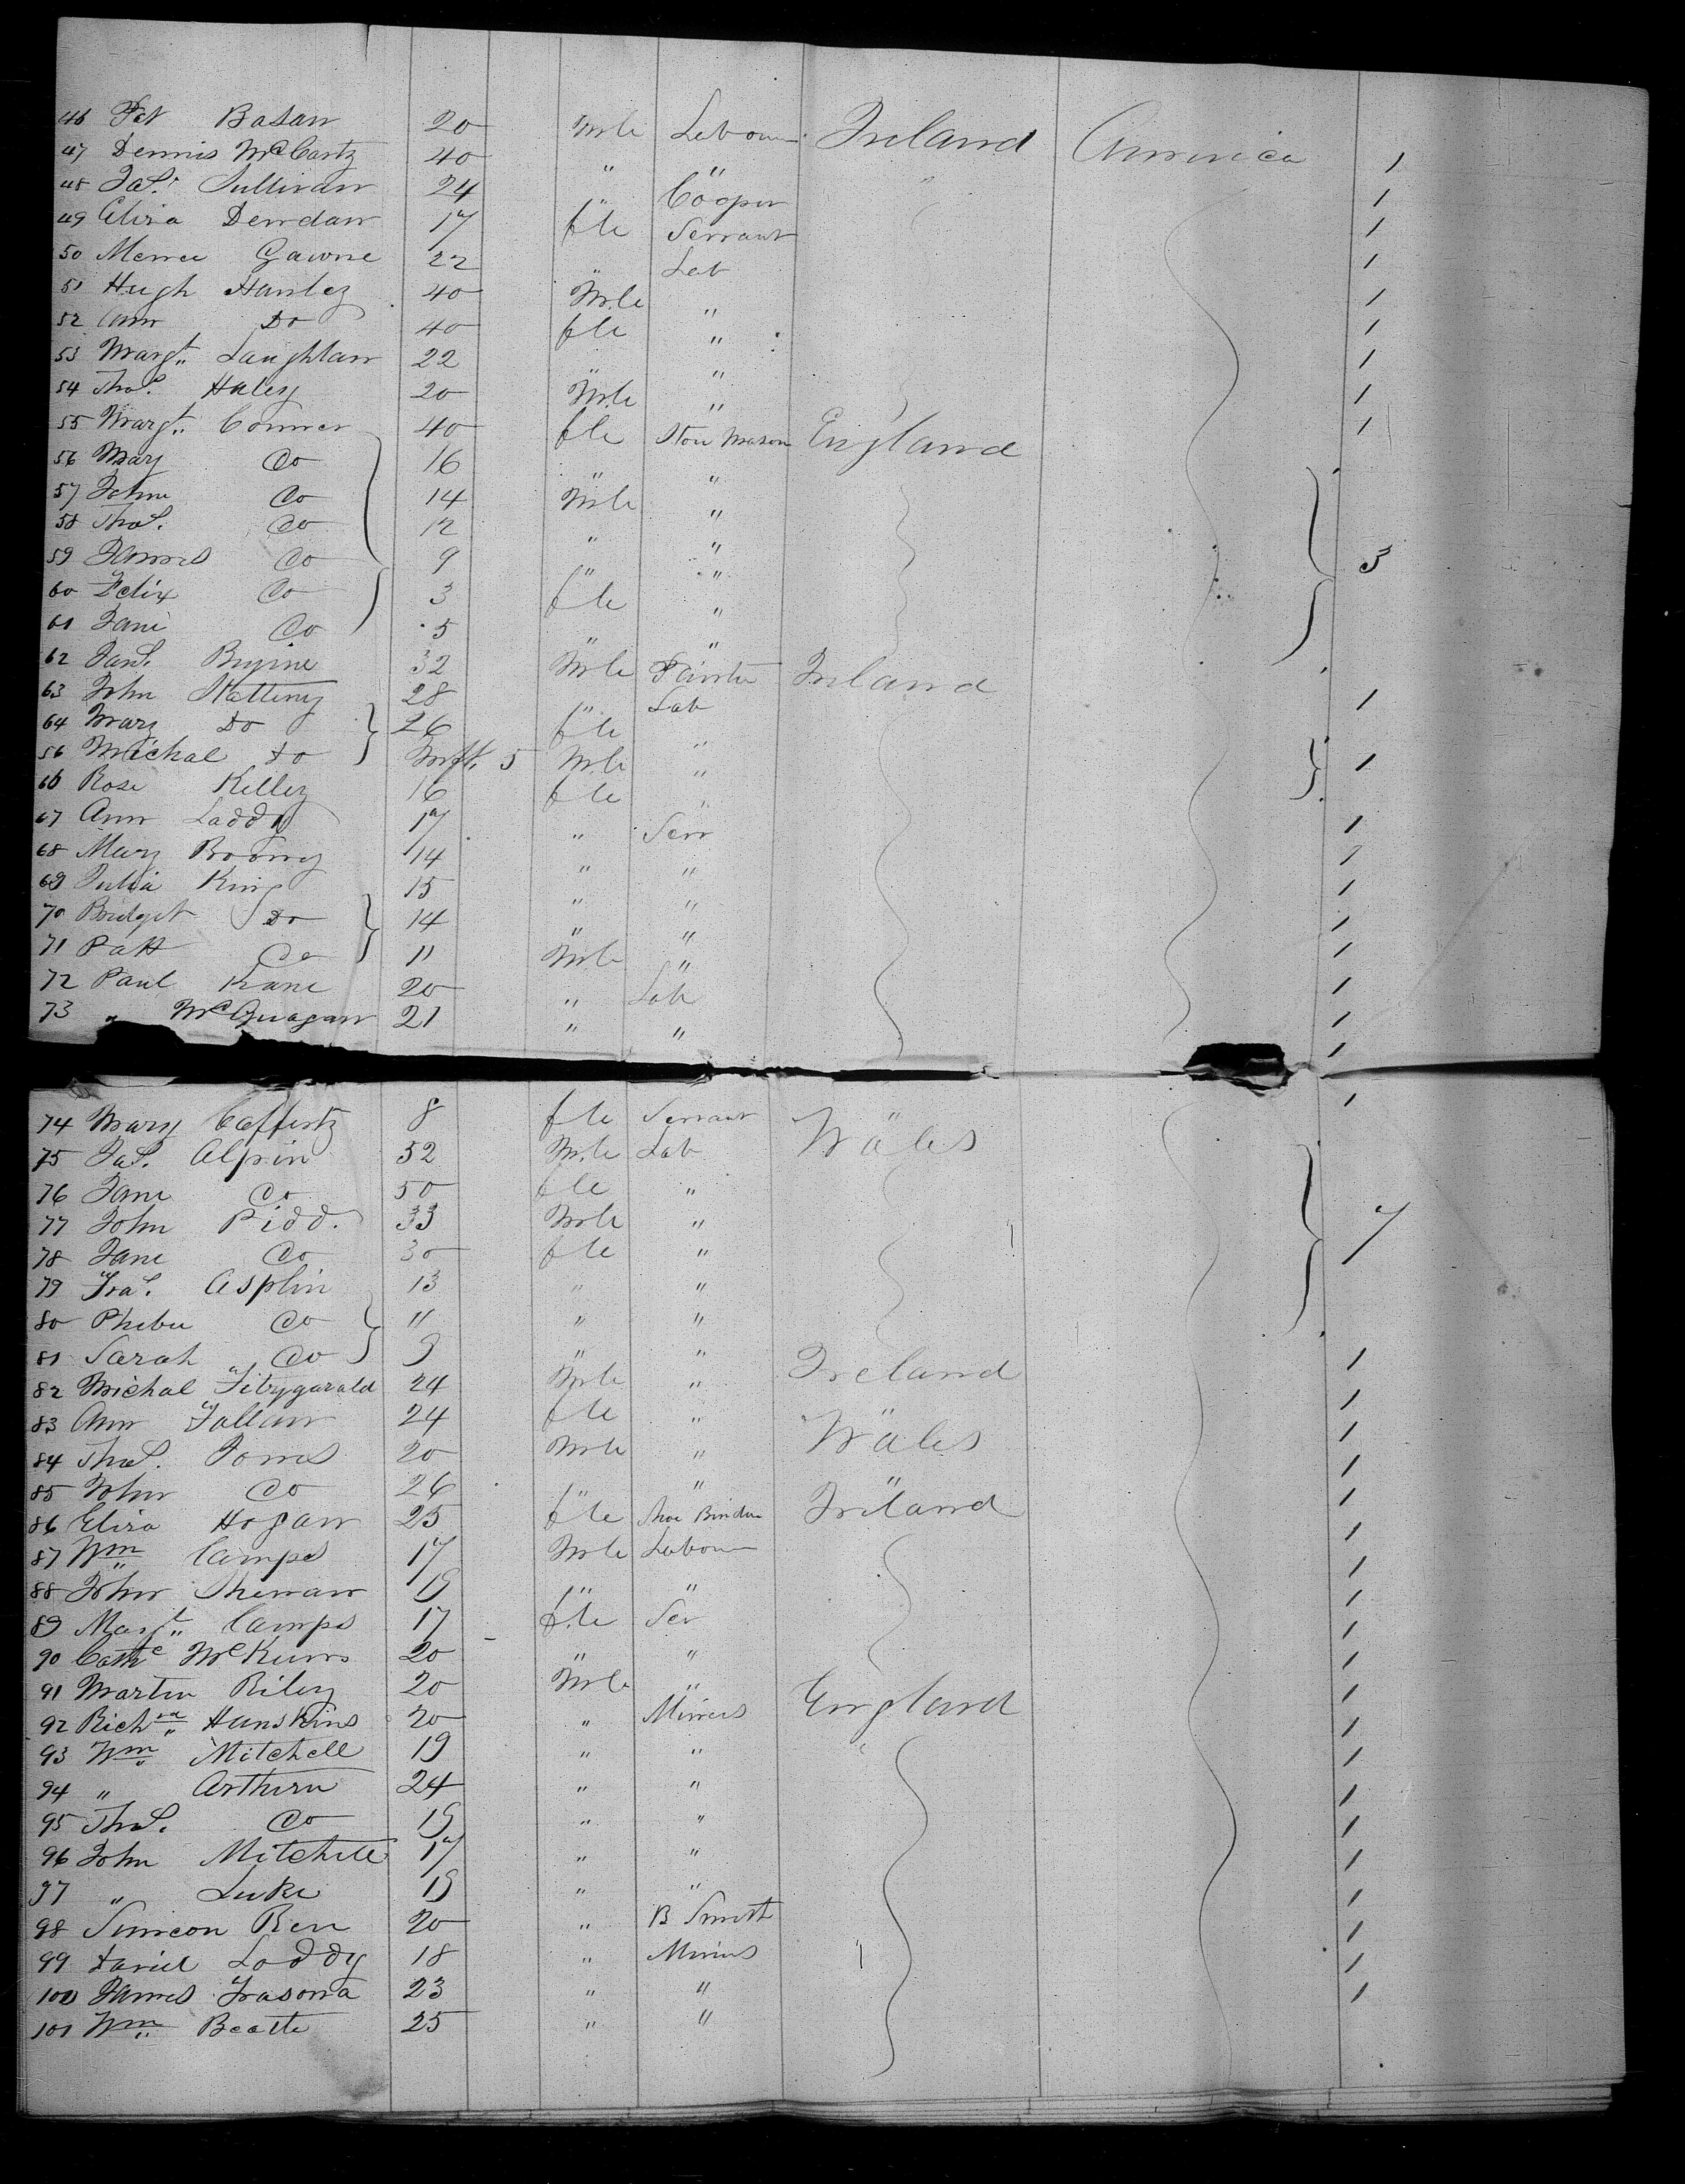 46 Pat Basan 20 Mle Labour Ireland America 1
47 Dennis McCarty 40 " " " 1
48 Jas. Sullivan 24 " Cooper 1
49 Eliza Derrdan 17 fle Servant 1
50 Gawne 22 " Lab 1
51 Hugh Hanley 40 Mle " 1
52 Ann Do 40 fle " 1
53 Margt. Laughlan 22 " " 1
54 Thos. Haley 20 Mle " 1
55 Margt. Connor 40 fle Ston Mason England
56 Mary Do 16 " "
57 John Do 14 Mle "
58 Thos. Do 12 " "
59 James Do 9 " " 5
60 Felix Do 3 fle "
61 Jane Do 5 " "
62 Jas. Bryine 32 Mle Painter Ireland 1
63 John Statteny 28 " Lab
64 Mary Do 26 fle " 1
56 Michal do Inft. 5 Mle "
66 Rose Kelley 16 fle " 1
67 Ann Laddy 17 " Serv 1
68 Mary Roony 14 " " 1
69 Julia King 15 " " 1
70 Bridget Do 14 " " 1
71 Patt Do 11 Mle " 1
72 Paul Kane 20 " Lab 1
73 " McGuagan 21 " " 1
74 Mary Cafferty 8 fle Servant " 1
75 Jas. Alpin 52 Mle Lab Wales
76 Jane Do 50 fle "
77 John Pidd. 33 Mle " 7
78 Jane Do 30 fle "
79 Fras. Asplin 13 " "
80 Phebee Do 11 " "
81 Sarah Do 9 " "
82 Michal Fitzygarald 24 Mle " Ireland 1
83 Ann Fallan 24 fle " " 1
84 Thos. Jones 20 Mle " Wales 1
85 John Do 26 " " " 1
86 Eliza Hogan 25 fle Shoe Binder Ireland 1
87 Wm Camps 17 Mle Labour 1
88 John Shenan 19 " " 1
89 Margt. Camps 17 fle Ser 1
90 Cathe McKunn 20 " " 1
91 Martin Riley 20 Mle " 1
92 Richrd Hanskins 20 " Miners England 1
93 Wm Mitchell 19 " " " 1
94 " Arthurn 24 " " 1
95 Thos. Do 19 " " 1
96 John Mitchell 17 " " 1
97 " Luke 19 " " 1
98 Simeon Ren 20 " B Smith 1
99 Daniel Loddy 18 " Miners 1
100 James Frasona 23 " " 1
101 Wm Beatte 25 " "